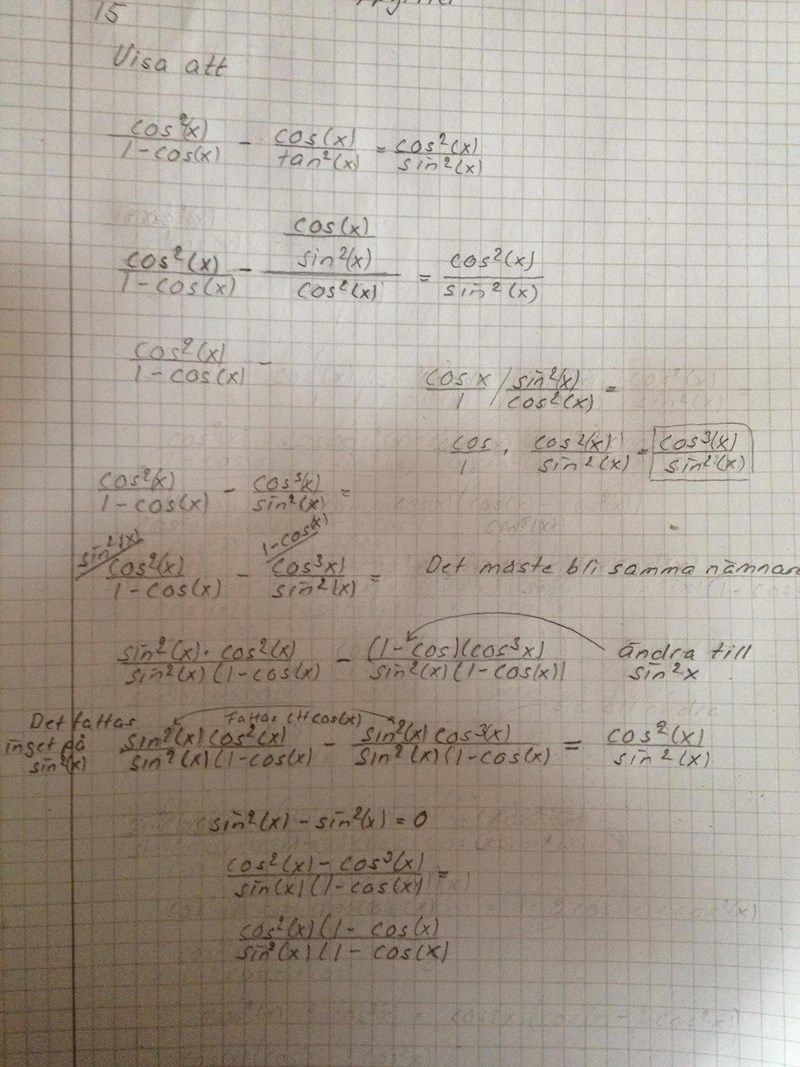 15
Visa att
cos²(x)/(1-cos(x)) - cos(x)/tan²(x) = cos²(x)/sin²(x)
cos²(x)/(1-cos(x)) - cos(x)/sin²(x)/cos²(x) = cos²(x)/sin²(x)
cos²(x)/(1-cos(x)) -
cos x/1 / sin²(x)/cos²(x) =
cos/1 · cos²(x)/sin²(x) = cos³(x)/sin²(x)
cos²(x)/(1-cos(x)) - cos³(x)/sin²(x) =
sin²(x) 1-cos(x)
cos²(x)/(1-cos(x)) - cos³x)/sin²(x) = Det måste bli samma nämnar
sin²(x)·cos²(x)/sin²(x)(1-cos(x) - (1-cos)(cos³x)/sin²(x)(1-cos(x)) ändra till sin²x
Det fattas fattas (1+cos(x)
inget på sin²(x) sin²(x)cos²(x)/sin²(x)(1-cos(x) - sin²(x)cos³(x)/sin²(x)(1-cos(x) = cos²(x)/sin²(x)
sin²(x) - sin²(x) = 0
cos²(x) - cos³(x)/sin(x)(1-cos(x) =
cos²(x)(1-cos(x)/sin²(x)(1-cos(x)